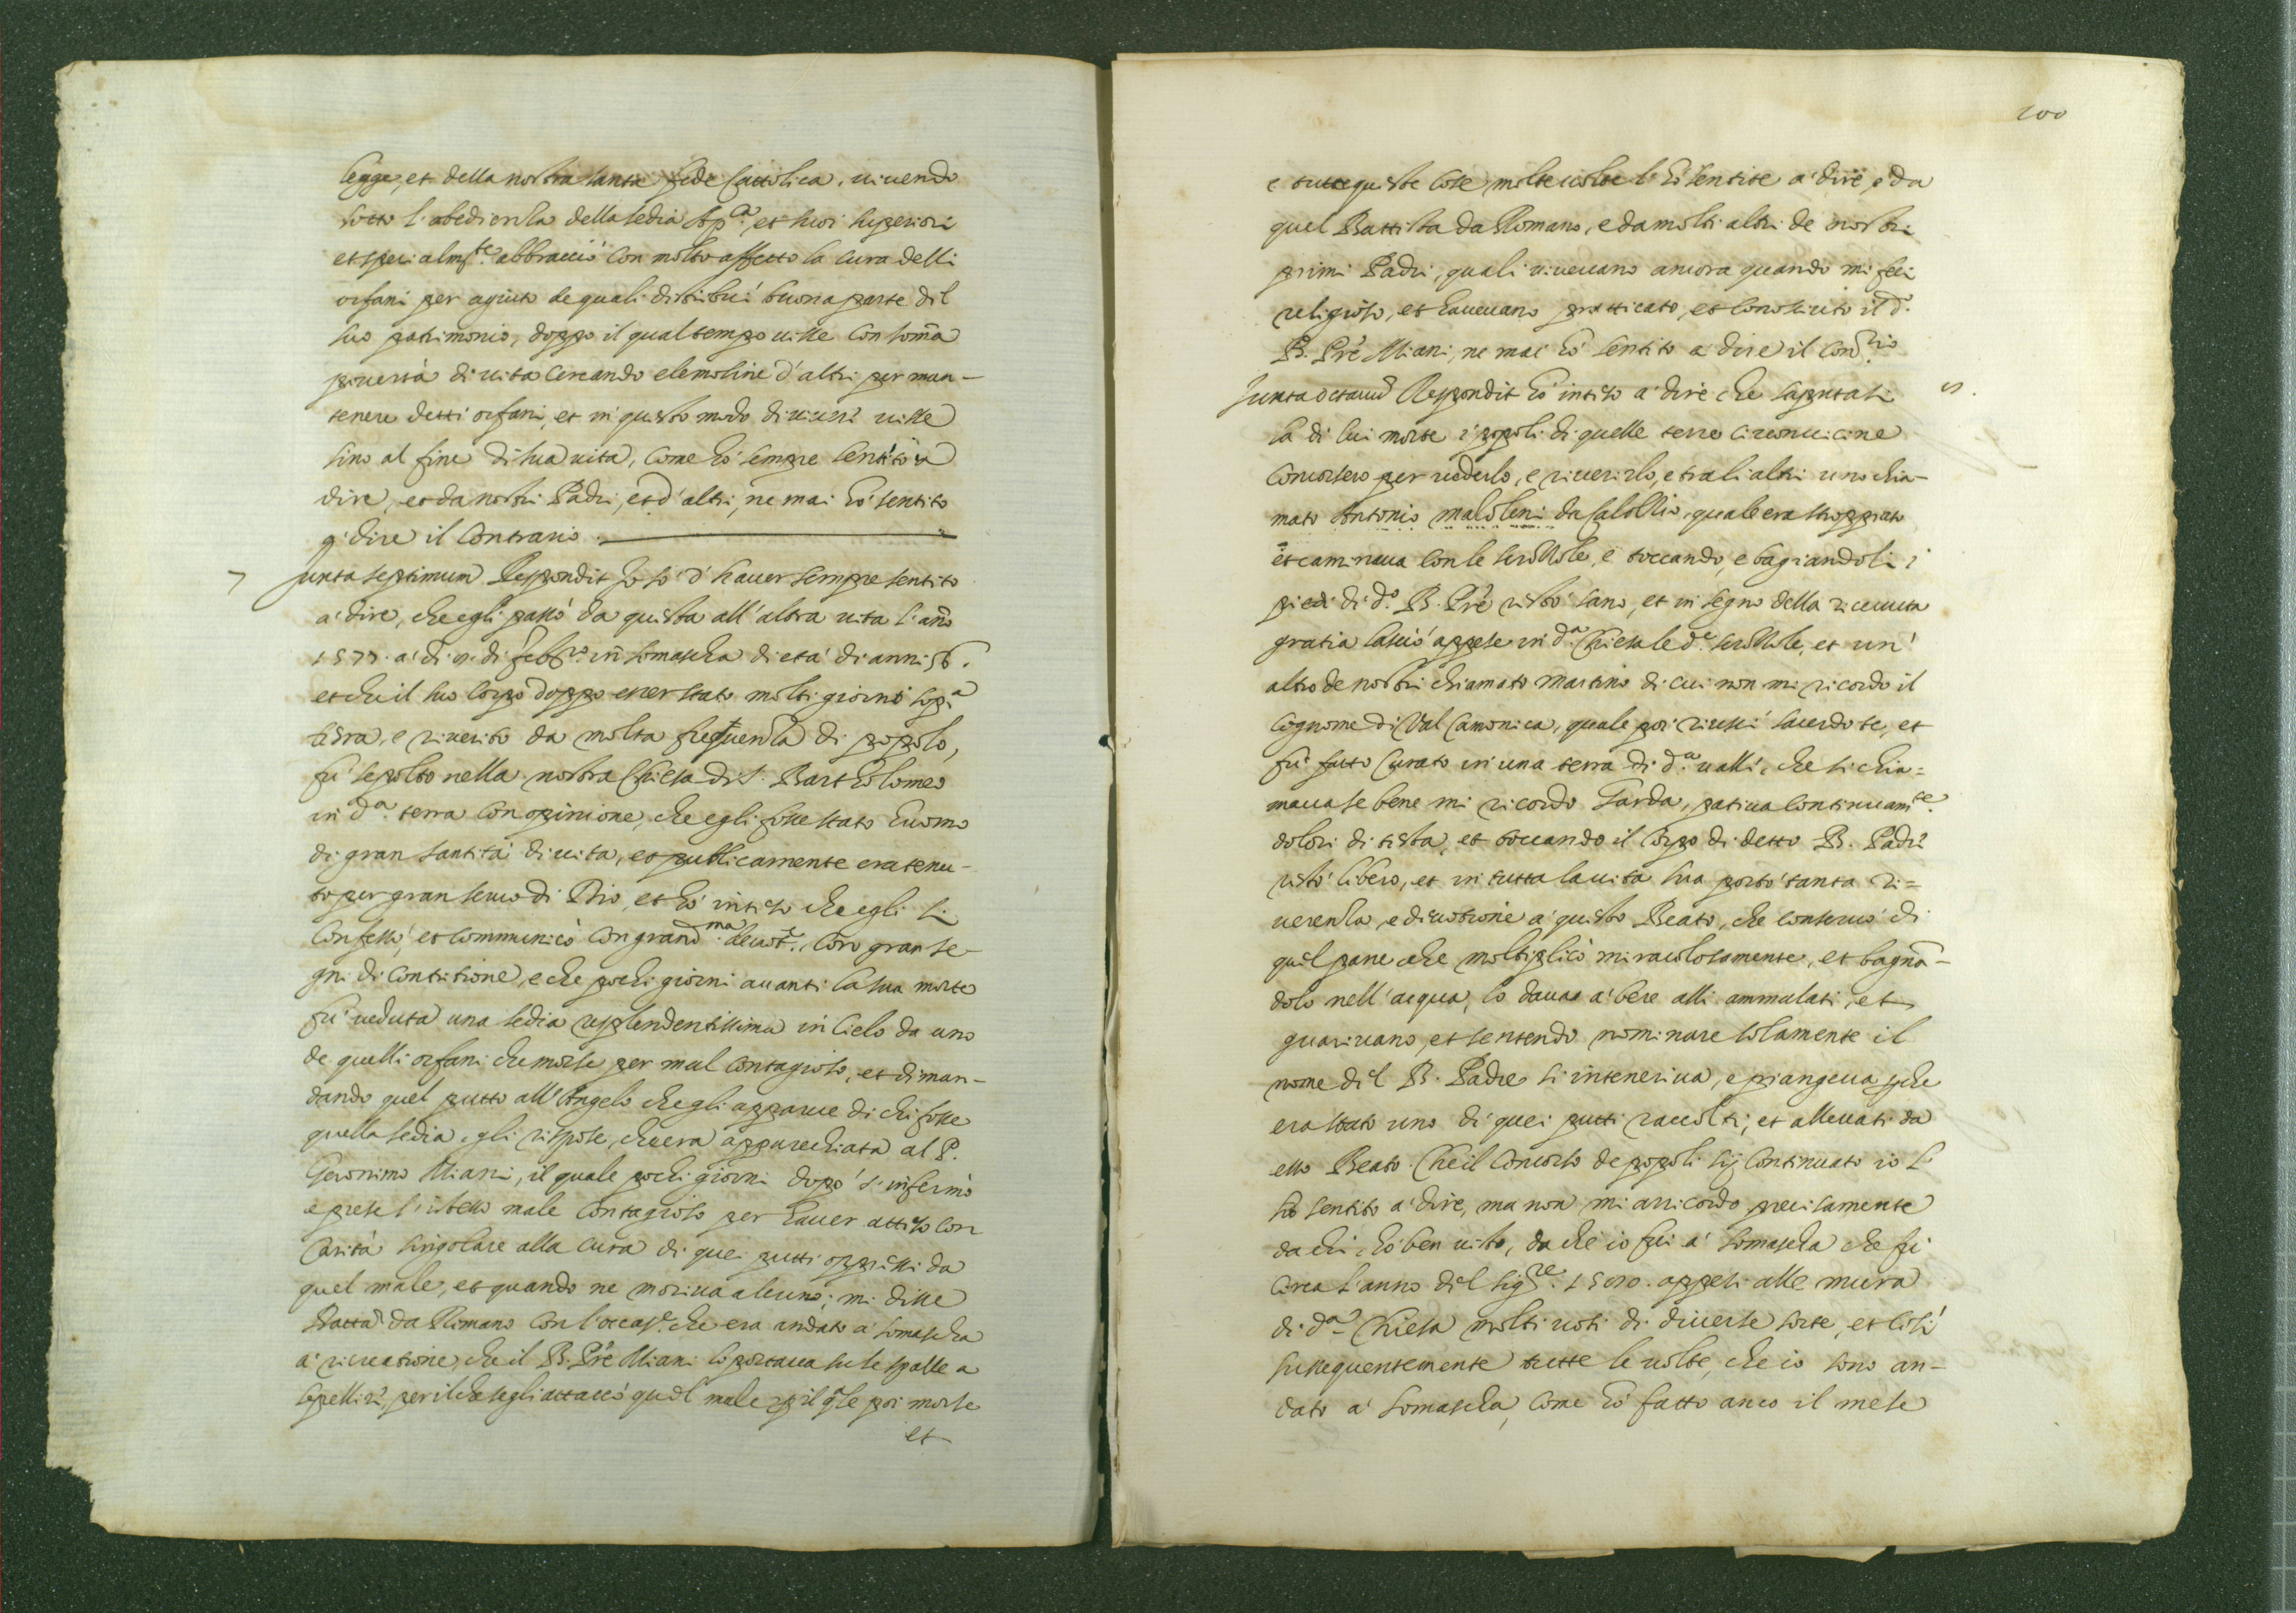 legge, et della nostra santa fede Cattolica, vivendo
sotto l'obedienza della sedia Ap.ca et suoi superiori
et specialm.te abbracciò con molto affetto la cura delli
orfani per agiuto de quali distribuì buona parte del
suo patrimonio, doppo il qual tempo visse con som̃a
povertà di vita cercando elemosine d'altri per man-
tenere detti orfani, et in questo modo di vivere visse
sino al fine di sua vita, come hò sempre sentito a
dire, et da nostri Padri, et d'altri, ne mai hò sentito
a dire il contrario.
7 Juxta septimum Respondit Io sò d'haver sempre sentito
a dire, che egli passò da questa all'altra vita l'an̄o
a di 8. di febr.o in Somascha di età di anni 56.
et che il suo corpo doppo esser stato molti giorni sop.a
terra, e riverito da molta frequenza di popolo,
fu sepolto nella nostra Chiesa di S. Bartholomeo
in d.a terra con opinione, che egli fosse stato huomo
di gran santità di vita, et publicamente era tenu-
to per gran servo di Dio, et hò inteso che egli si
confessò, et communicò con grand.ma devot.e, con gran se-
gni di contritione, e che pochi giorni avanti la sua morte
fu veduta una sedia resplendentissima in Cielo da uno
de quelli orfani che morse per mal contagioso, et diman-
dando quel putto all'Angelo che gli apparve di chi fosse
quella sedia, gli rispose, che era apparechiata al P.
Geronimo Miani, il quale pochi giorni dopò s'infermò
e prese l'istesso male contagioso per haver atteso con
carità singolare alla cura di quei putti oppressi da
quel male, et quando ne moriva alcuno; mi disse
Batta da Romano con l'occas.e che era andato à Somascha
à ricreatione, che il B. Prē Miani li portava su le spalle a
sepellire, per il che se gli attaccò quel male p il q̄le poi morse
et
200
e tutte queste cose molte volte l'hò sentite a dire, e da
quel Battista da Romano, e da molti altri de nostri
primi Padri, quali vivevano ancora quando mi feci
religioso, et havevano pratticato, et conosciuto il d.o
B. Prē Miani, ne mai hò sentito a dire il con.rio
Juxta octavũ Respondit hò inteso a dire che saputasi 8.
la di lui morte i popoli di quelle terre circonvicine
concorsero per vederlo, e riverirlo, e tra li altri uno chia-
mato Antonio da Calolzio, quale era stroppiato
et caminava con le scrozzole, e toccando, e bagiandoli i
piedi di d.o B. Prē restò sano, et in segno della ricevuta
gratia lasciò appese in d.a Chiesa le d.e scrozzole, et un'
altro de nostri chiamato Martino di cui non mi ricordo il
cognome di Val Camonica, quale poi riuscì sacerdote, et
fù fatto Curato in una terra di d.a valli, che si chia=
mava se bene mi ricordo Garda, pativa continuam.te
dolori di testa, et toccando il corpo di detto B. Padre
restò libero, et in tutta la vita sua portò tanta ri=
verenza, e divotione a questo Beato, che conservò di
quel pane che moltiplicò miracolosamente, et bagnā-
dolo nell'acqua, lo dava a bere alli ammalati, et
guarivano, et sentendo nominare solamente il
nome del B. Padre si inteneriva, e piangeva, p che
era stato uno di quei putti raccolti, et allevati da
esso Beato. Che il concorso de popoli sij continuato io l'
hò sentito a dire, ma non mi arricordo precisamente
da chi, hò ben visto, da che io fui a Somascha che fù
circa l'anno del Sig.re appesi alle mura
di d.a Chiesa molti voti di diverse sorte, et così
sussequentemente tutte le volte, che io sono an-
dato a Somascha, come hò fatto anco il mese